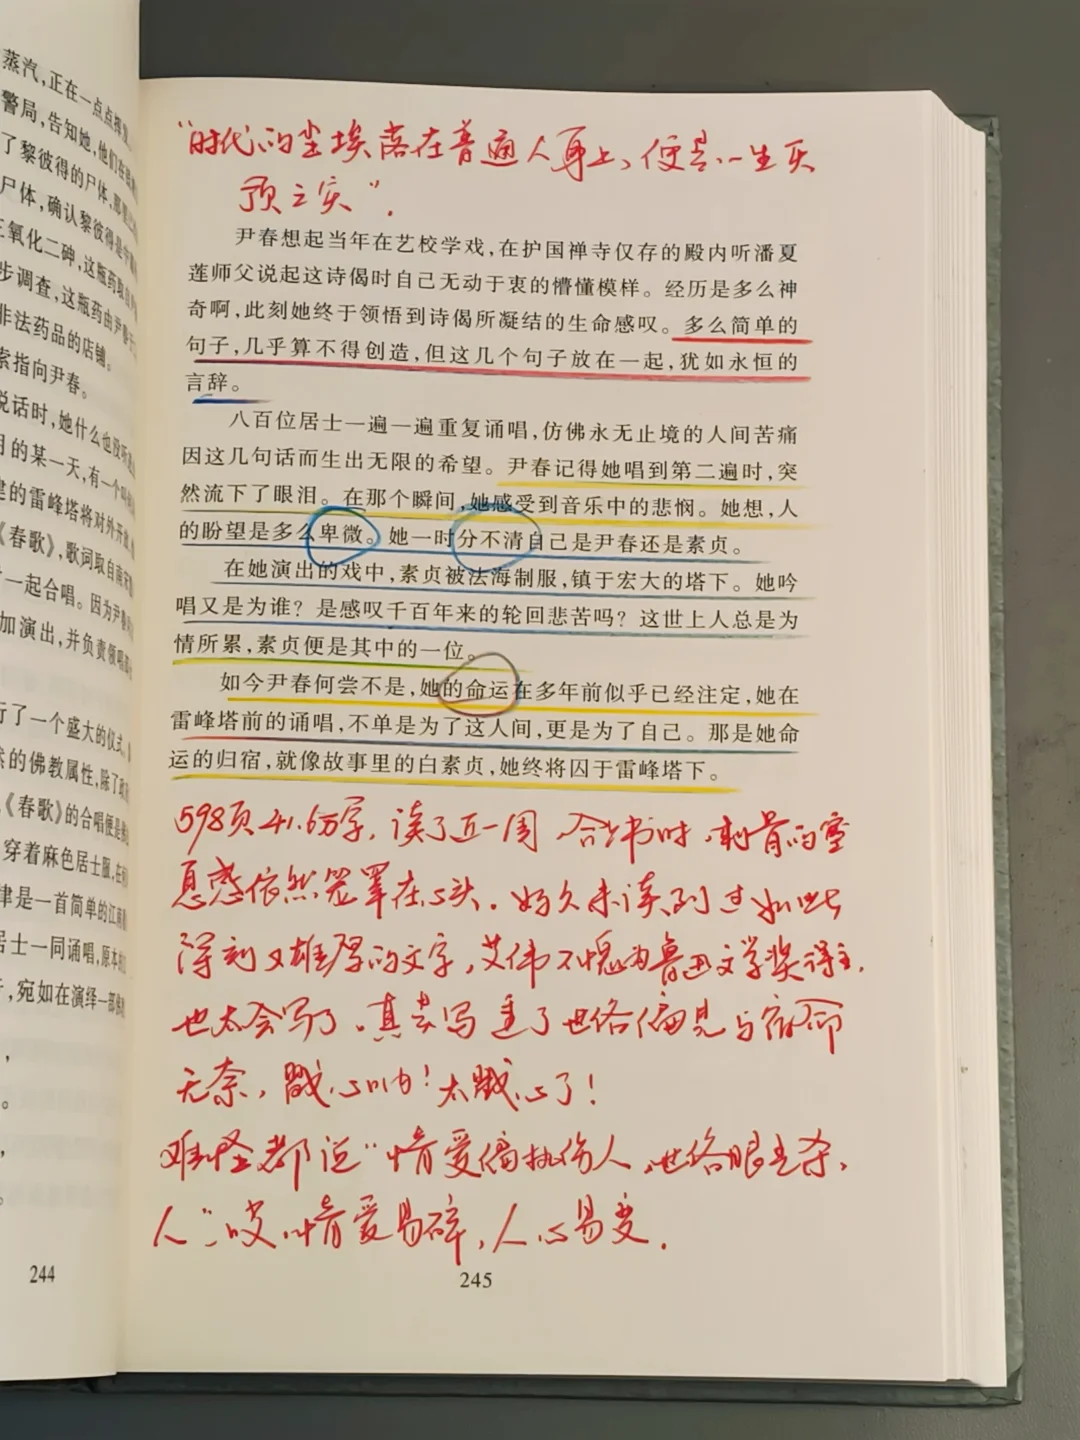 蒸汽,正在一点点挥
警局,告知她,他们在
了黎彼得的尸体,那
尸体,确认黎彼得是
三氧化二砷,这瓶药取自
步调查,这瓶药由尹
非法药品的店铺。
索指向尹春。
说话时,她什么也没听
月的某一天,有一个叫
建的雷峰塔将对外开放
《春歌》,歌词取自南宋
一起合唱。因为尹春
加演出,并负责领唱
行了一个盛大的仪式。
然的佛教属性,除了
《春歌》的合唱便是
穿着麻色居士服,在
律是一首简单的江南
居士一同诵唱,原本
,宛如在演绎一部
244
“时代的尘埃落在普通人身上,便是一生灭
顶之灾”.
尹春想起当年在艺校学戏,在护国禅寺仅存的殿内听潘夏
莲师父说起这诗偈时自己无动于衷的懵懂模样。经历是多么神
奇啊,此刻她终于领悟到诗偈所凝结的生命感叹。多么简单的
句子,几乎算不得创造,但这几个句子放在一起,犹如永恒的
言辞。
八百位居士一遍一遍重复诵唱,仿佛永无止境的人间苦痛
因这几句话而生出无限的希望。尹春记得她唱到第二遍时,突
然流下了眼泪。在那个瞬间,她感受到音乐中的悲悯。她想,人
的盼望是多么卑微。她一时分不清自己是尹春还是素贞。
在她演出的戏中,素贞被法海制服,镇于宏大的塔下。她吟
唱又是为谁?是感叹千百年来的轮回悲苦吗?这世上人总是为
情所累,素贞便是其中的一位。
如今尹春何尝不是,她的命运在多年前似乎已经注定,她在
雷峰塔前的诵唱,不单是为了这人间,更是为了自己。那是她命
运的归宿,就像故事里的白素贞,她终将囚于雷峰塔下。
598页41.6万字,读了近一周,合上书时,刺骨的窒
息感依然笼罩在心头.好久未读到过如此
深刻又雄厚的文字,艾伟不愧为鲁迅文学奖得主,
也太会写了.真会写透了世俗偏见与宿命
无奈,戳心呐!太戳心了!
难怪都说“情爱偏执伤人,世俗眼光杀
人”.哎,情爱易碎,人心易变.
245